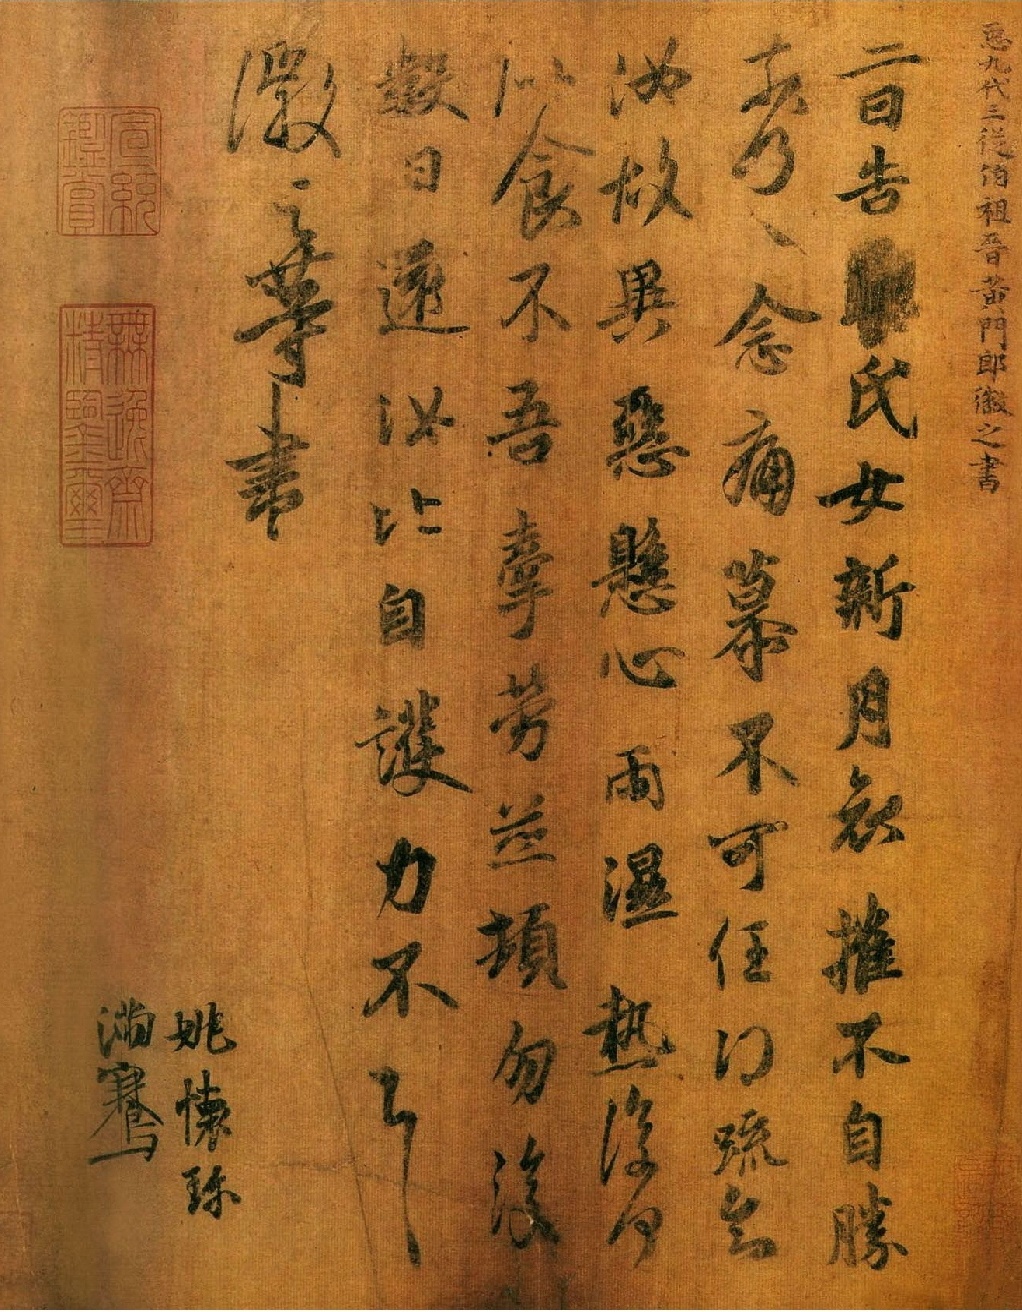 𢘑九代三從伯祖晉黃門郎徽之書
二日告氏女新月哀摧不自勝
奈何〻念痛慕不可任得疏知
汝故異惡懸心雨濕熱復何
似食不吾牽勞並頓勿復
數日還汝比自護力不具
徽之等書
姚懷珎
滿騫
宣統鑑賞
無逸齋精鑒璽